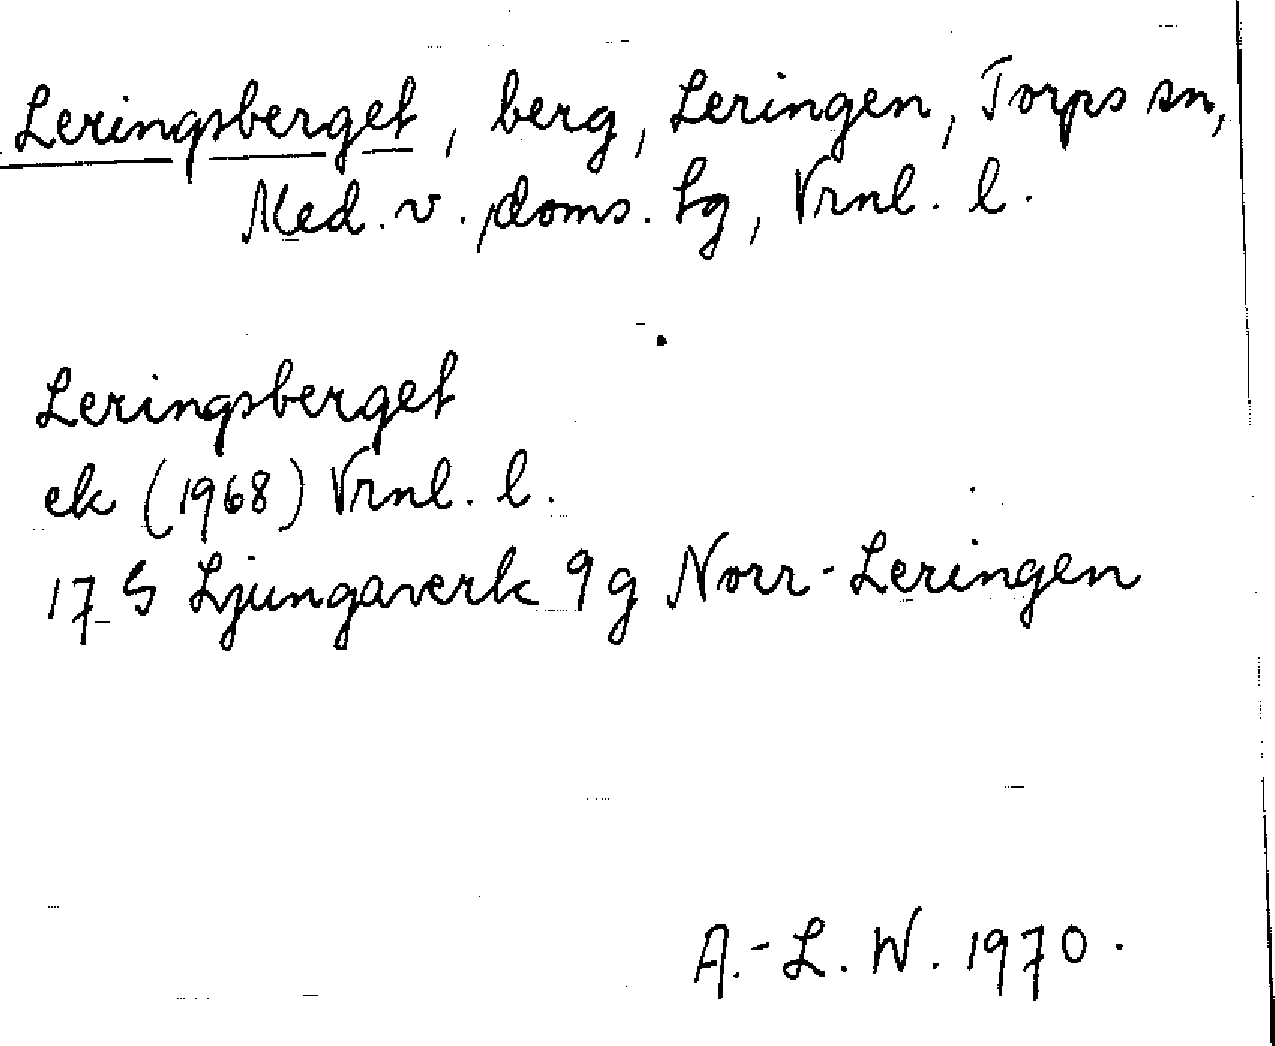 Leringsberget, berg, Leringen, Torps sn,
Med. v. doms. hg, Vrnl. l.
Leringsberget
ek (1968) Vrnl. l.
17 G Ljungaverk 9 g Norr-Leringen
A.-L. W. 1970.